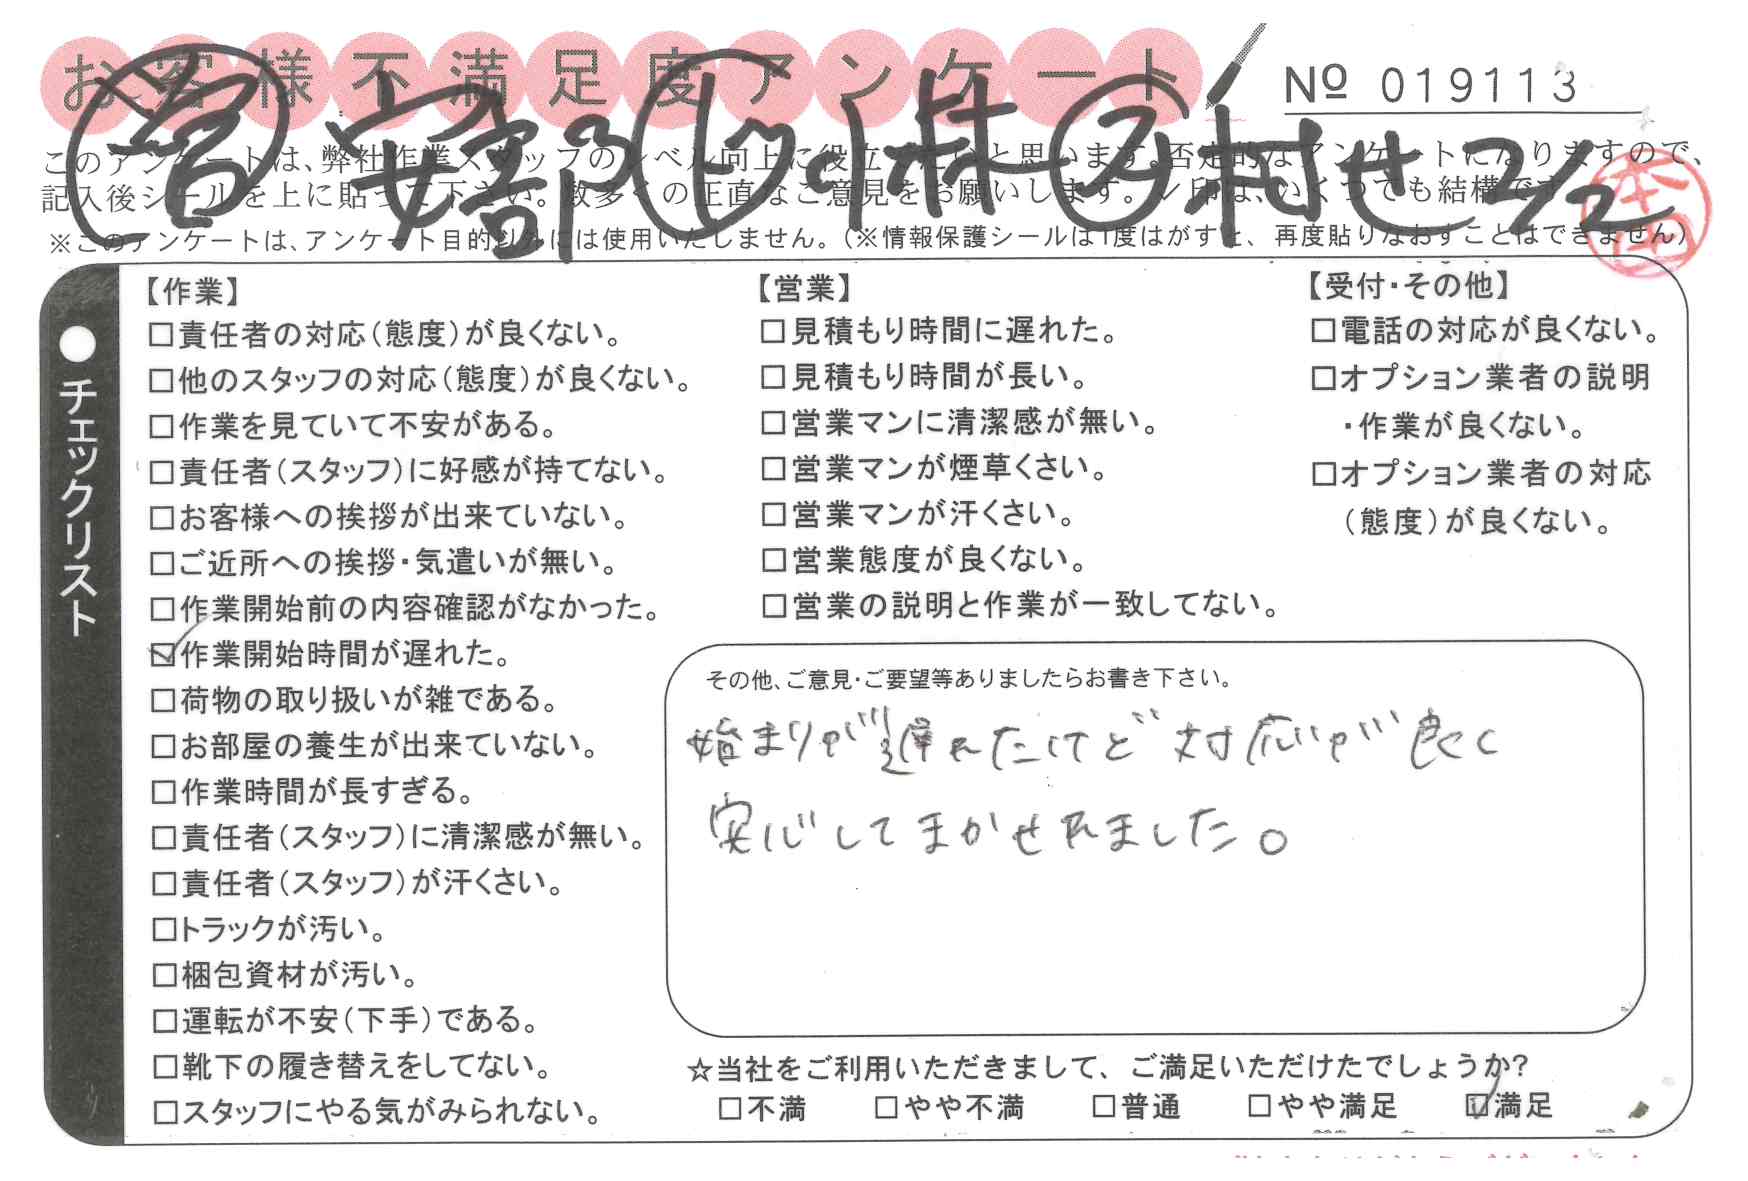 お客様不満足度アンケート
№ 019113
営 安部 リ 小林 ス 村せ 2/2
このアンケートは、弊社作業スタッフのレベル向上に役立てたいと思います。否定的なアンケートになりますので、
記入後シールを上に貼って下さい。数多くの正直なご意見をお願いします。✓印は、いくつでも結構です。
※このアンケートは、アンケート目的以外には使用いたしません。(※情報保護シールは1度はがすと、再度貼りなおすことはできません)
本田
●チェックリスト
【作業】
□責任者の対応(態度)が良くない。
□他のスタッフの対応(態度)が良くない。
□作業を見ていて不安がある。
□責任者(スタッフ)に好感が持てない。
□お客様への挨拶が出来ていない。
□ご近所への挨拶・気遣いが無い。
□作業開始前の内容確認がなかった。
☑作業開始時間が遅れた。
□荷物の取り扱いが雑である。
□お部屋の養生が出来ていない。
□作業時間が長すぎる。
□責任者(スタッフ)に清潔感が無い。
□責任者(スタッフ)が汗くさい。
□トラックが汚い。
□梱包資材が汚い。
□運転が不安(下手)である。
□靴下の履き替えをしてない。
□スタッフにやる気がみられない。
【営業】
□見積もり時間に遅れた。
□見積もり時間が長い。
□営業マンに清潔感が無い。
□営業マンが煙草くさい。
□営業マンが汗くさい。
□営業態度が良くない。
□営業の説明と作業が一致してない。
【受付・その他】
□電話の対応が良くない。
□オプション業者の説明
・作業が良くない。
□オプション業者の対応
(態度)が良くない。
その他、ご意見・ご要望等ありましたらお書き下さい。
始まりが遅れたけど対応が良く
安心してまかせれました。
☆当社をご利用いただきまして、ご満足いただけたでしょうか?
□不満 □やや不満 □普通 □やや満足 ☑満足